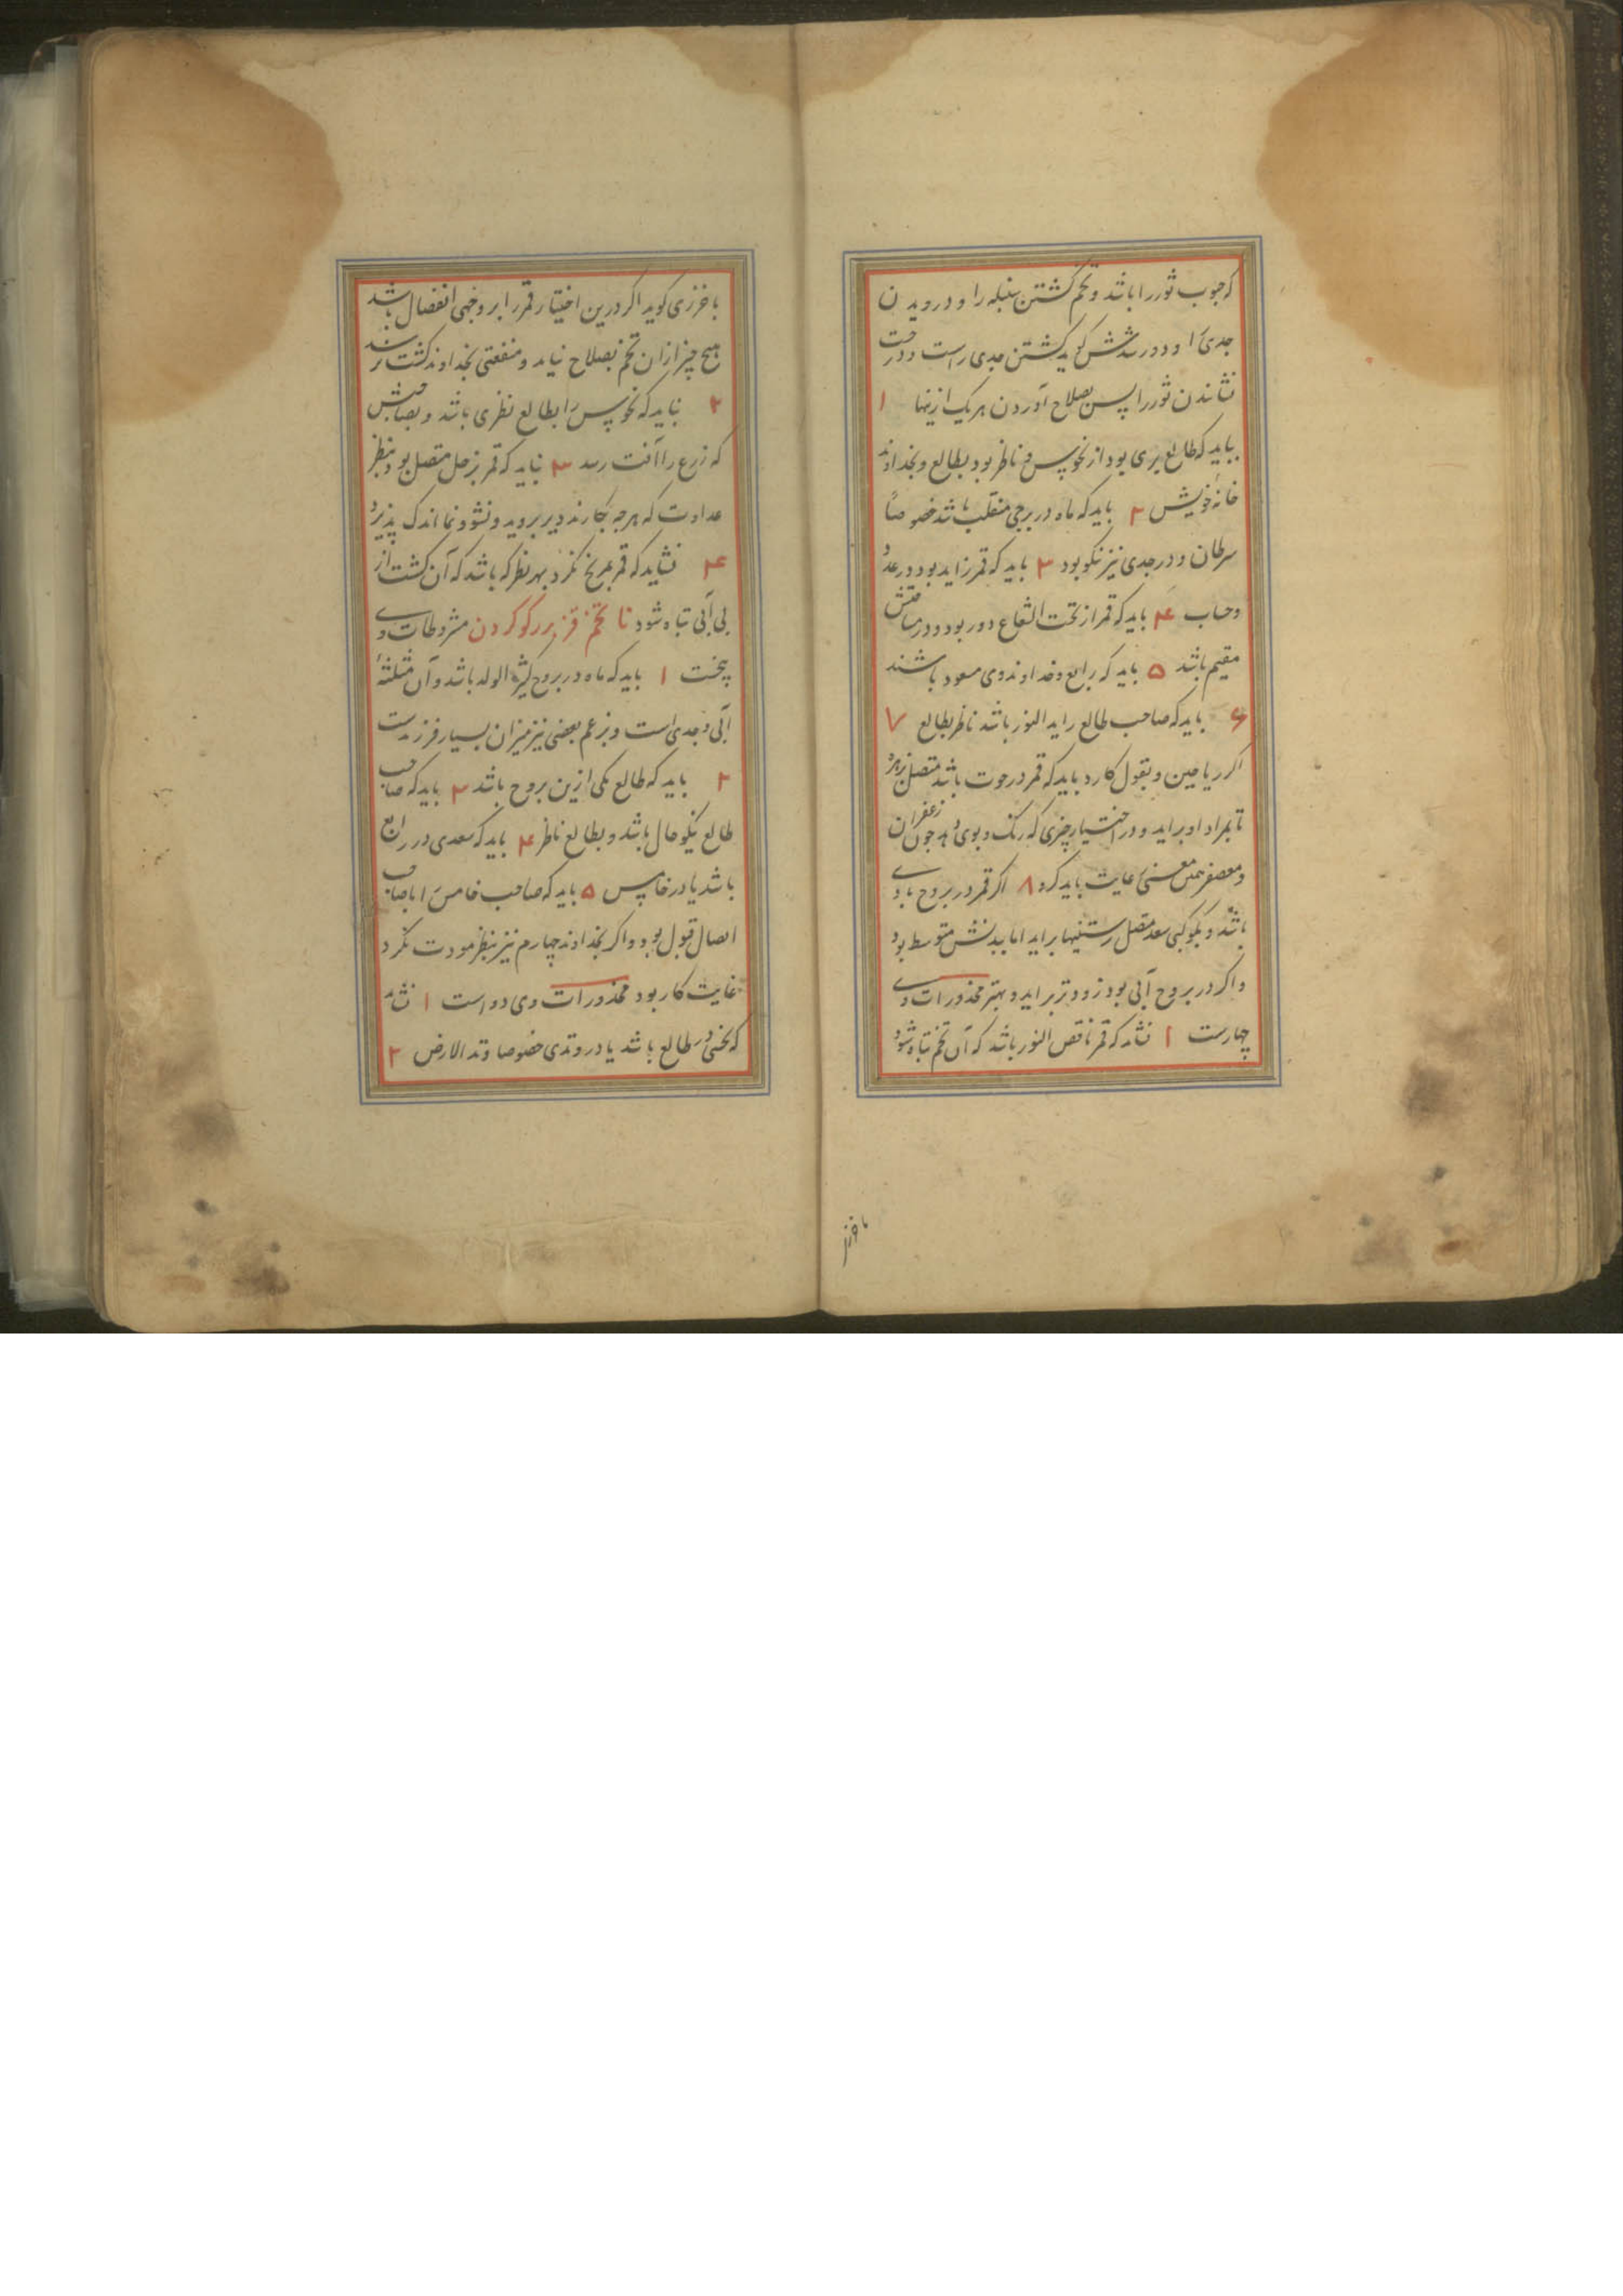 که حبوب ثور را باشد و تخم کشتن سنبله را و درویدن
جدی را و دورسدشش کوید کشتن جدی راست و درخت
نشاندن ثور را پس بصلاح آوردن هر یک ازینها ۱
بباید که طالع بری بود از نحوس و ناظر بود بطالع و بخداوند
خانهٔ خویش ۲ باید که ماه در برجی منقلب باشد خصوصاً
سرطان و در جدی نیز نکو بود ۳ باید که قمر زاید بود در عدد
وحساب ۴ باید که قمر از تحت الشعاع دور بود و درمنا
مقیم باشد ۵ باید که رابع و خداوند وی مسعود باشند
۶ باید که صاحب طالع زاید النور باشد ناظر بطالع ۷
اکر ریاحین و بقول کارد باید که قمر در حوت باشد متصل بزهره
تا بمراد او براید و در اختیار چیزی که رنک و بوی دهد جون زعفران
و معصفر همین معنی رعایت باید کرد ۸ اکر قمر در بروج بادی
باشد و بکوکبی سعد متصل رستنیها براید اما بدنش متوسط بود
و اکر در بروج آبی بود زودتر براید و بهتر محذورات وی
چهارست ۱ نشاید که قمر ناقص النور باشد که آن تخم تباه شود
باخرزی
باخرزی کوید اکر درین اختیار قمر را بر وجهی انفصال باشد
هیچ چیز ازان تخم بصلاح نیاید و منفعتی بخداوند کشت نرسد
۲ نباید که نحوس را بطالع نظری باشد و بصاحبش
که زرع را آفت رسد ۳ نباید که قمر بزحل متصل بود بنظر
عداوت که هرجه بکارند دیر بروید و نشو و نما اندک پذیرد
۴ نشاید که قمر بمریخ نکرد بهر نظر که باشد که آن کشت از
بی آبی تباه شود تا تخم قز برکوکردن مشروطات وی
پنجست ۱ باید که ماه در بروج کثیر الولد باشد و آن مثلثهٔ
آبی و جدی است و بزعم بعضی نیز میزان بسیار فرزندست
۲ باید که طالع یکی ازین بروج باشد ۳ باید که صاحب
طالع نیکو حال باشد و بطالع ناظر ۴ باید که سعدی در رابع
باشد یا در خامس ۵ باید که صاحب خامس را با صاحب
اتصال قبول بود و اکر بخداوند چهارم نیز بنظر مودت نکرد
غایت کار بود محذورات وی دو است ۱ نشاید
که نحسی در طالع باشد یا در وتدی خصوصا وتد الارض ۲